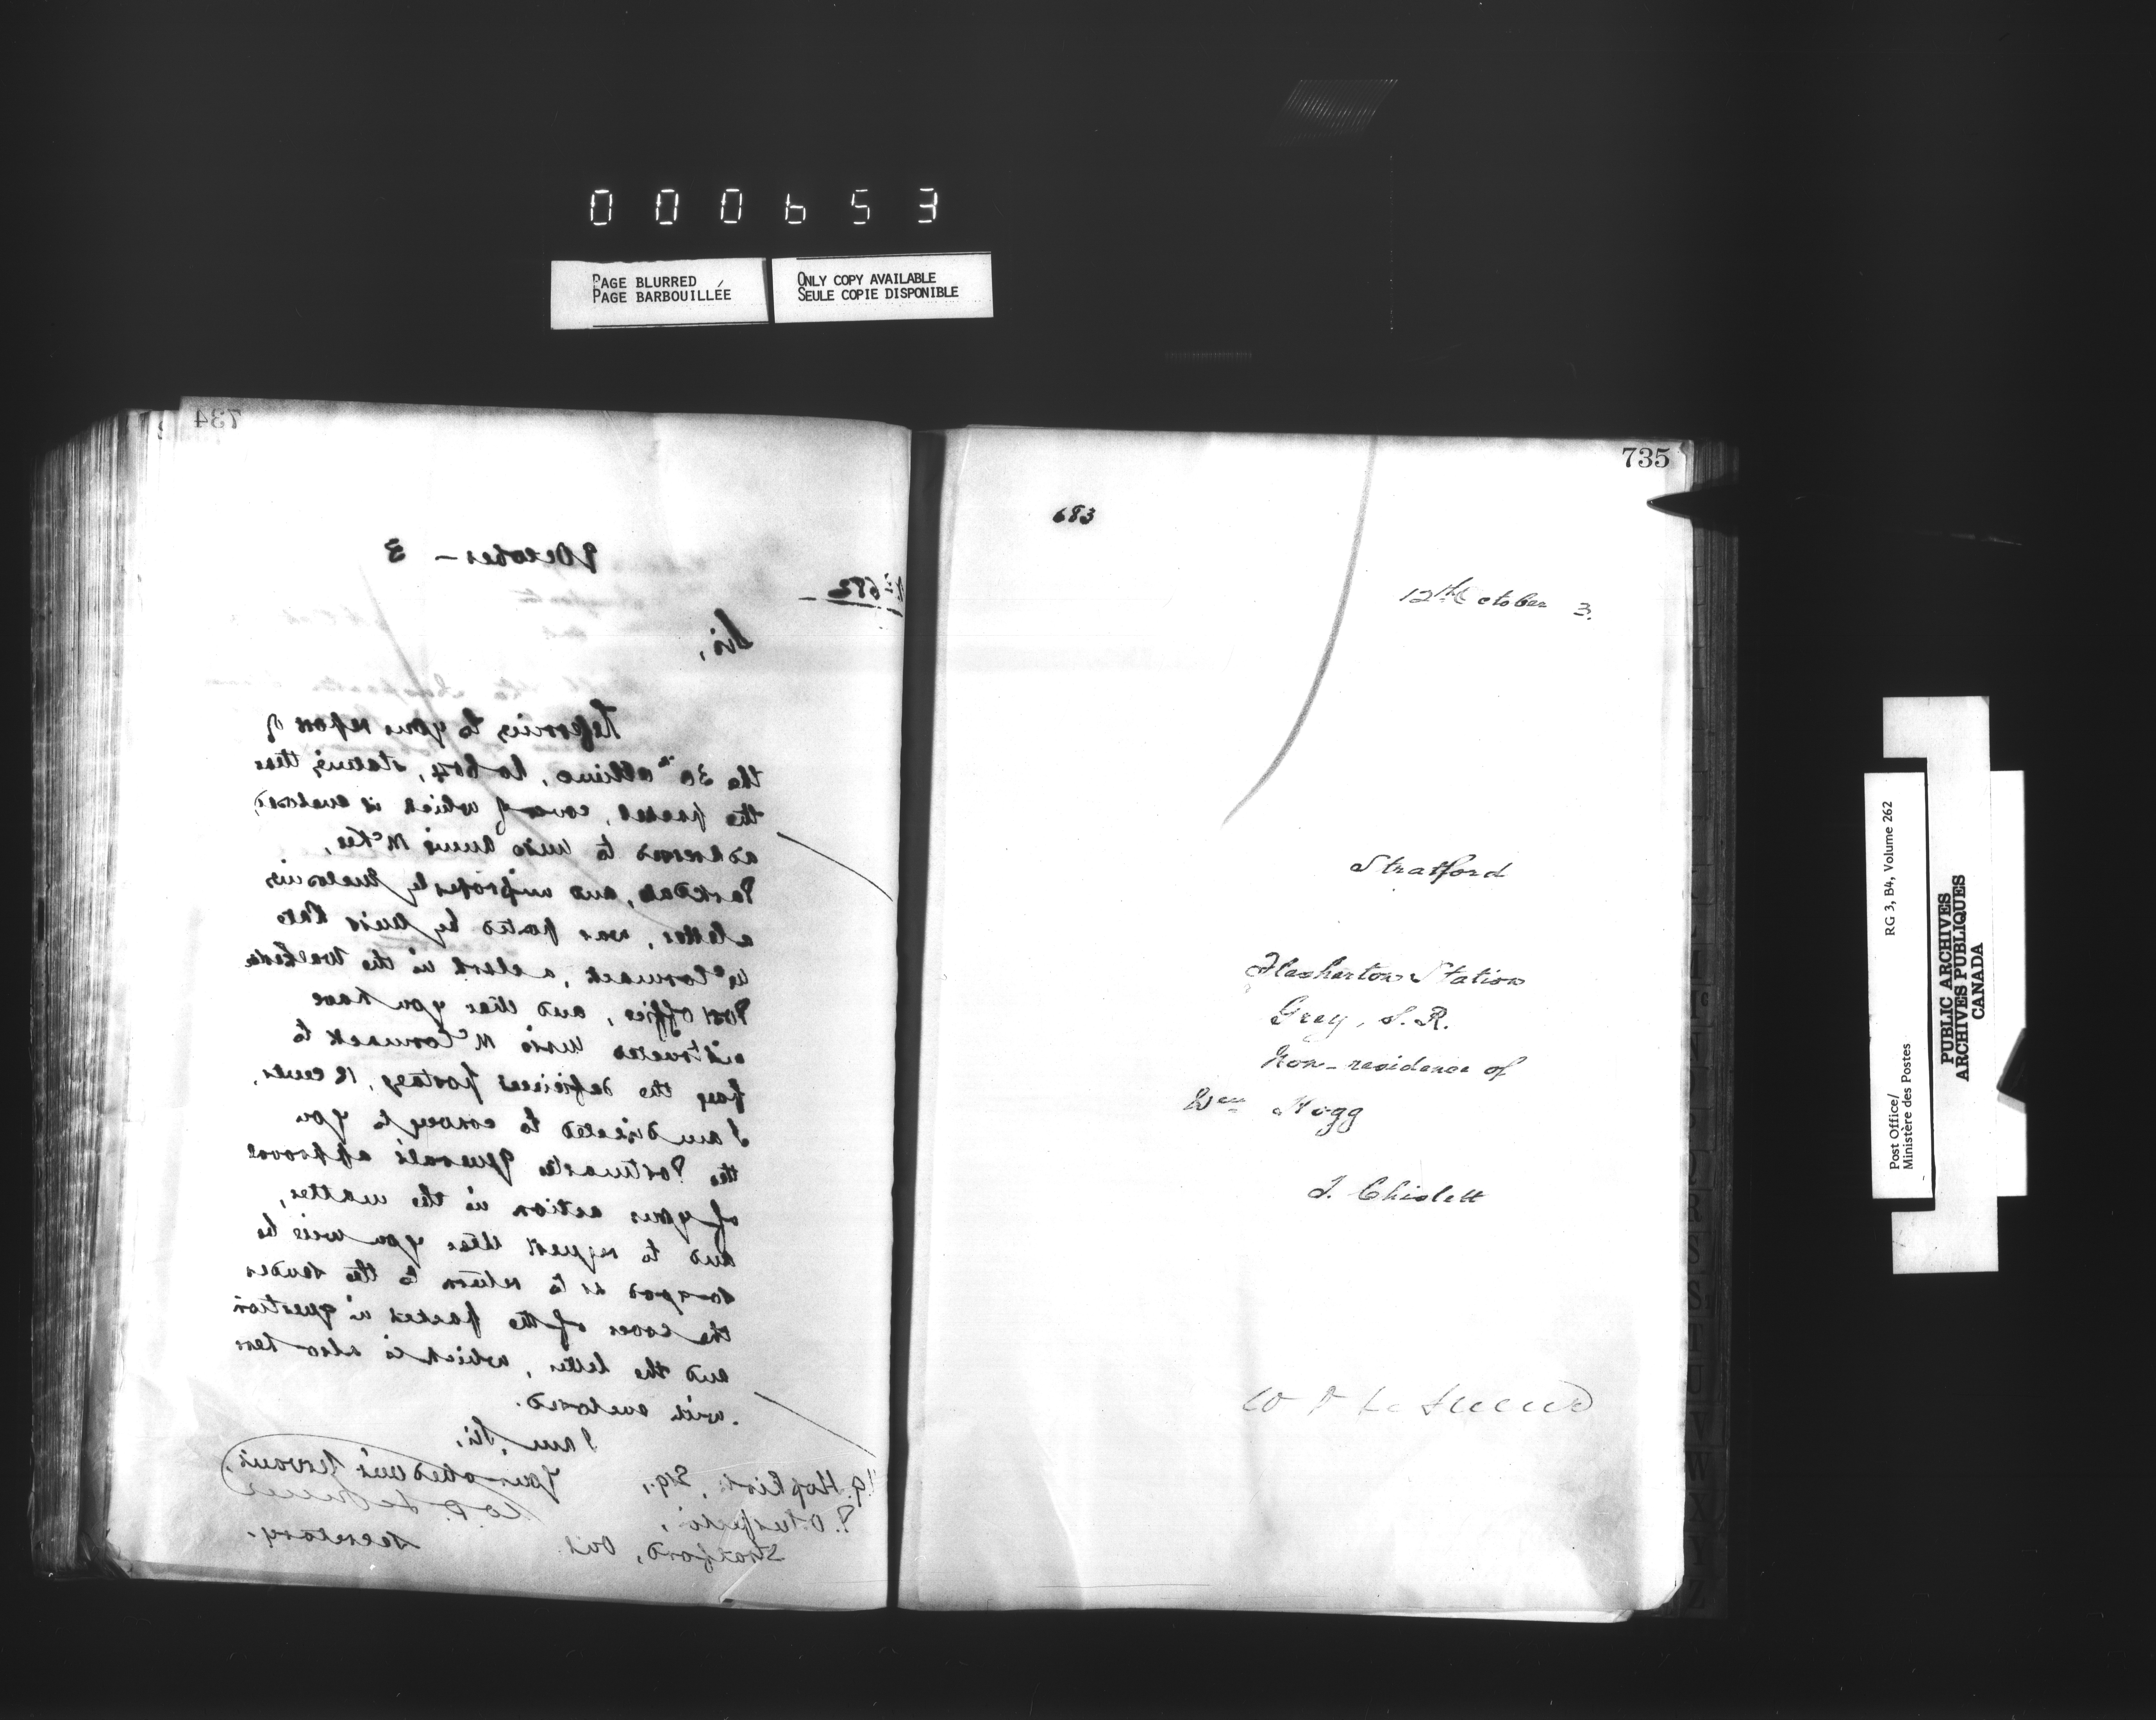 000653
PAGE BLURRED
PAGE BARBOUILLÉE
ONLY COPY AVAILABLE
SEULE COPIE DISPONIBLE
734
9 October - 3
No 682
Sir,
Referring to your report of
the 30th ultimo, No 604, stating that
the packet, cover of which is enclosed,
addressed to Miss Annie McKee,
Parkdale, and improperly enclosing
a letter, was posted by Miss Kate
McCormack, a clerk in the Walkerton
Post Office, and that you have
instructed Miss McCormack to
pay the deficient postage, 12 cents,
I am directed to convey to you
the Postmaster General's approval
of your action in the matter,
and to request that you will be
so good as to return to the sender
the cover of the packet in question
and the letter, which is also here
with enclosed.
I am, Sir,
Your obedient Servant,
Secretary.
Hopkirk, Esq.,
P.O. Inspector,
Stratford, Ont
735
683
12th October 3.
Stratford
Flesherton Station
Grey, S. R.
Non-residence of
Wm Hogg
J. Chislett
W D LeSueur
RG 3, B4, Volume 262
Post Office/
Ministère des Postes
PUBLIC ARCHIVES
ARCHIVES PUBLIQUES
CANADA